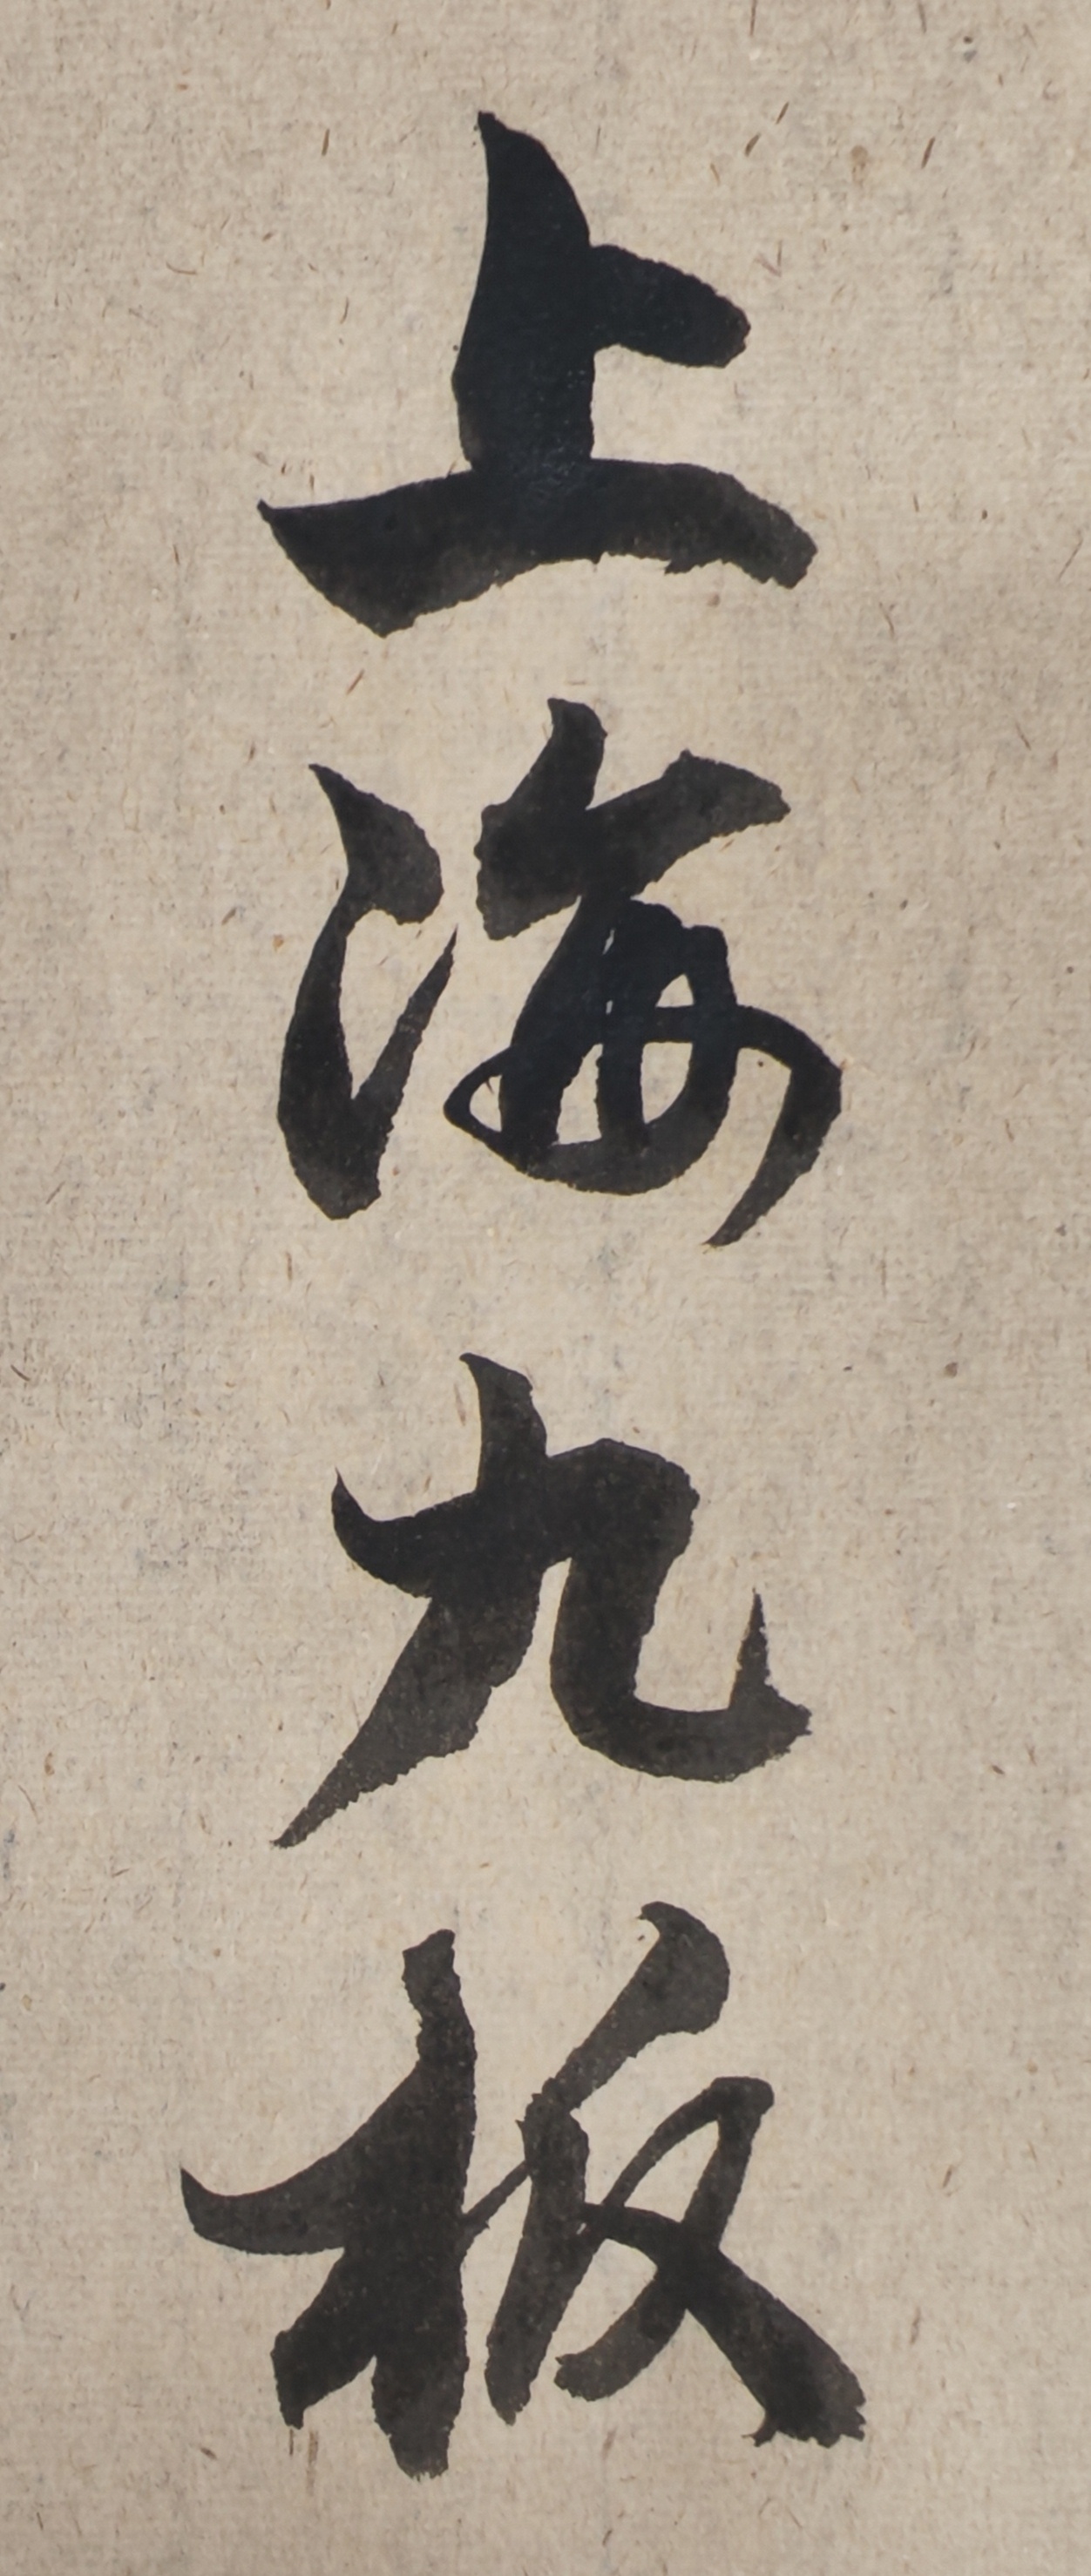 上海九板